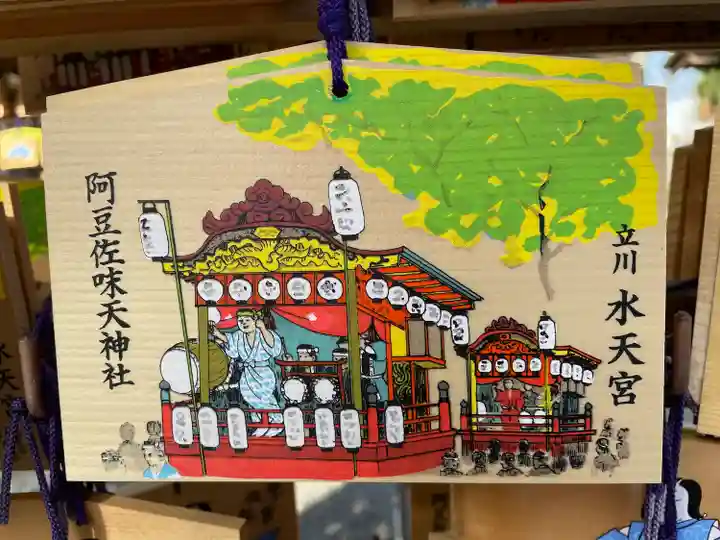 立川 水天宮
阿豆佐味天神社
水天宮